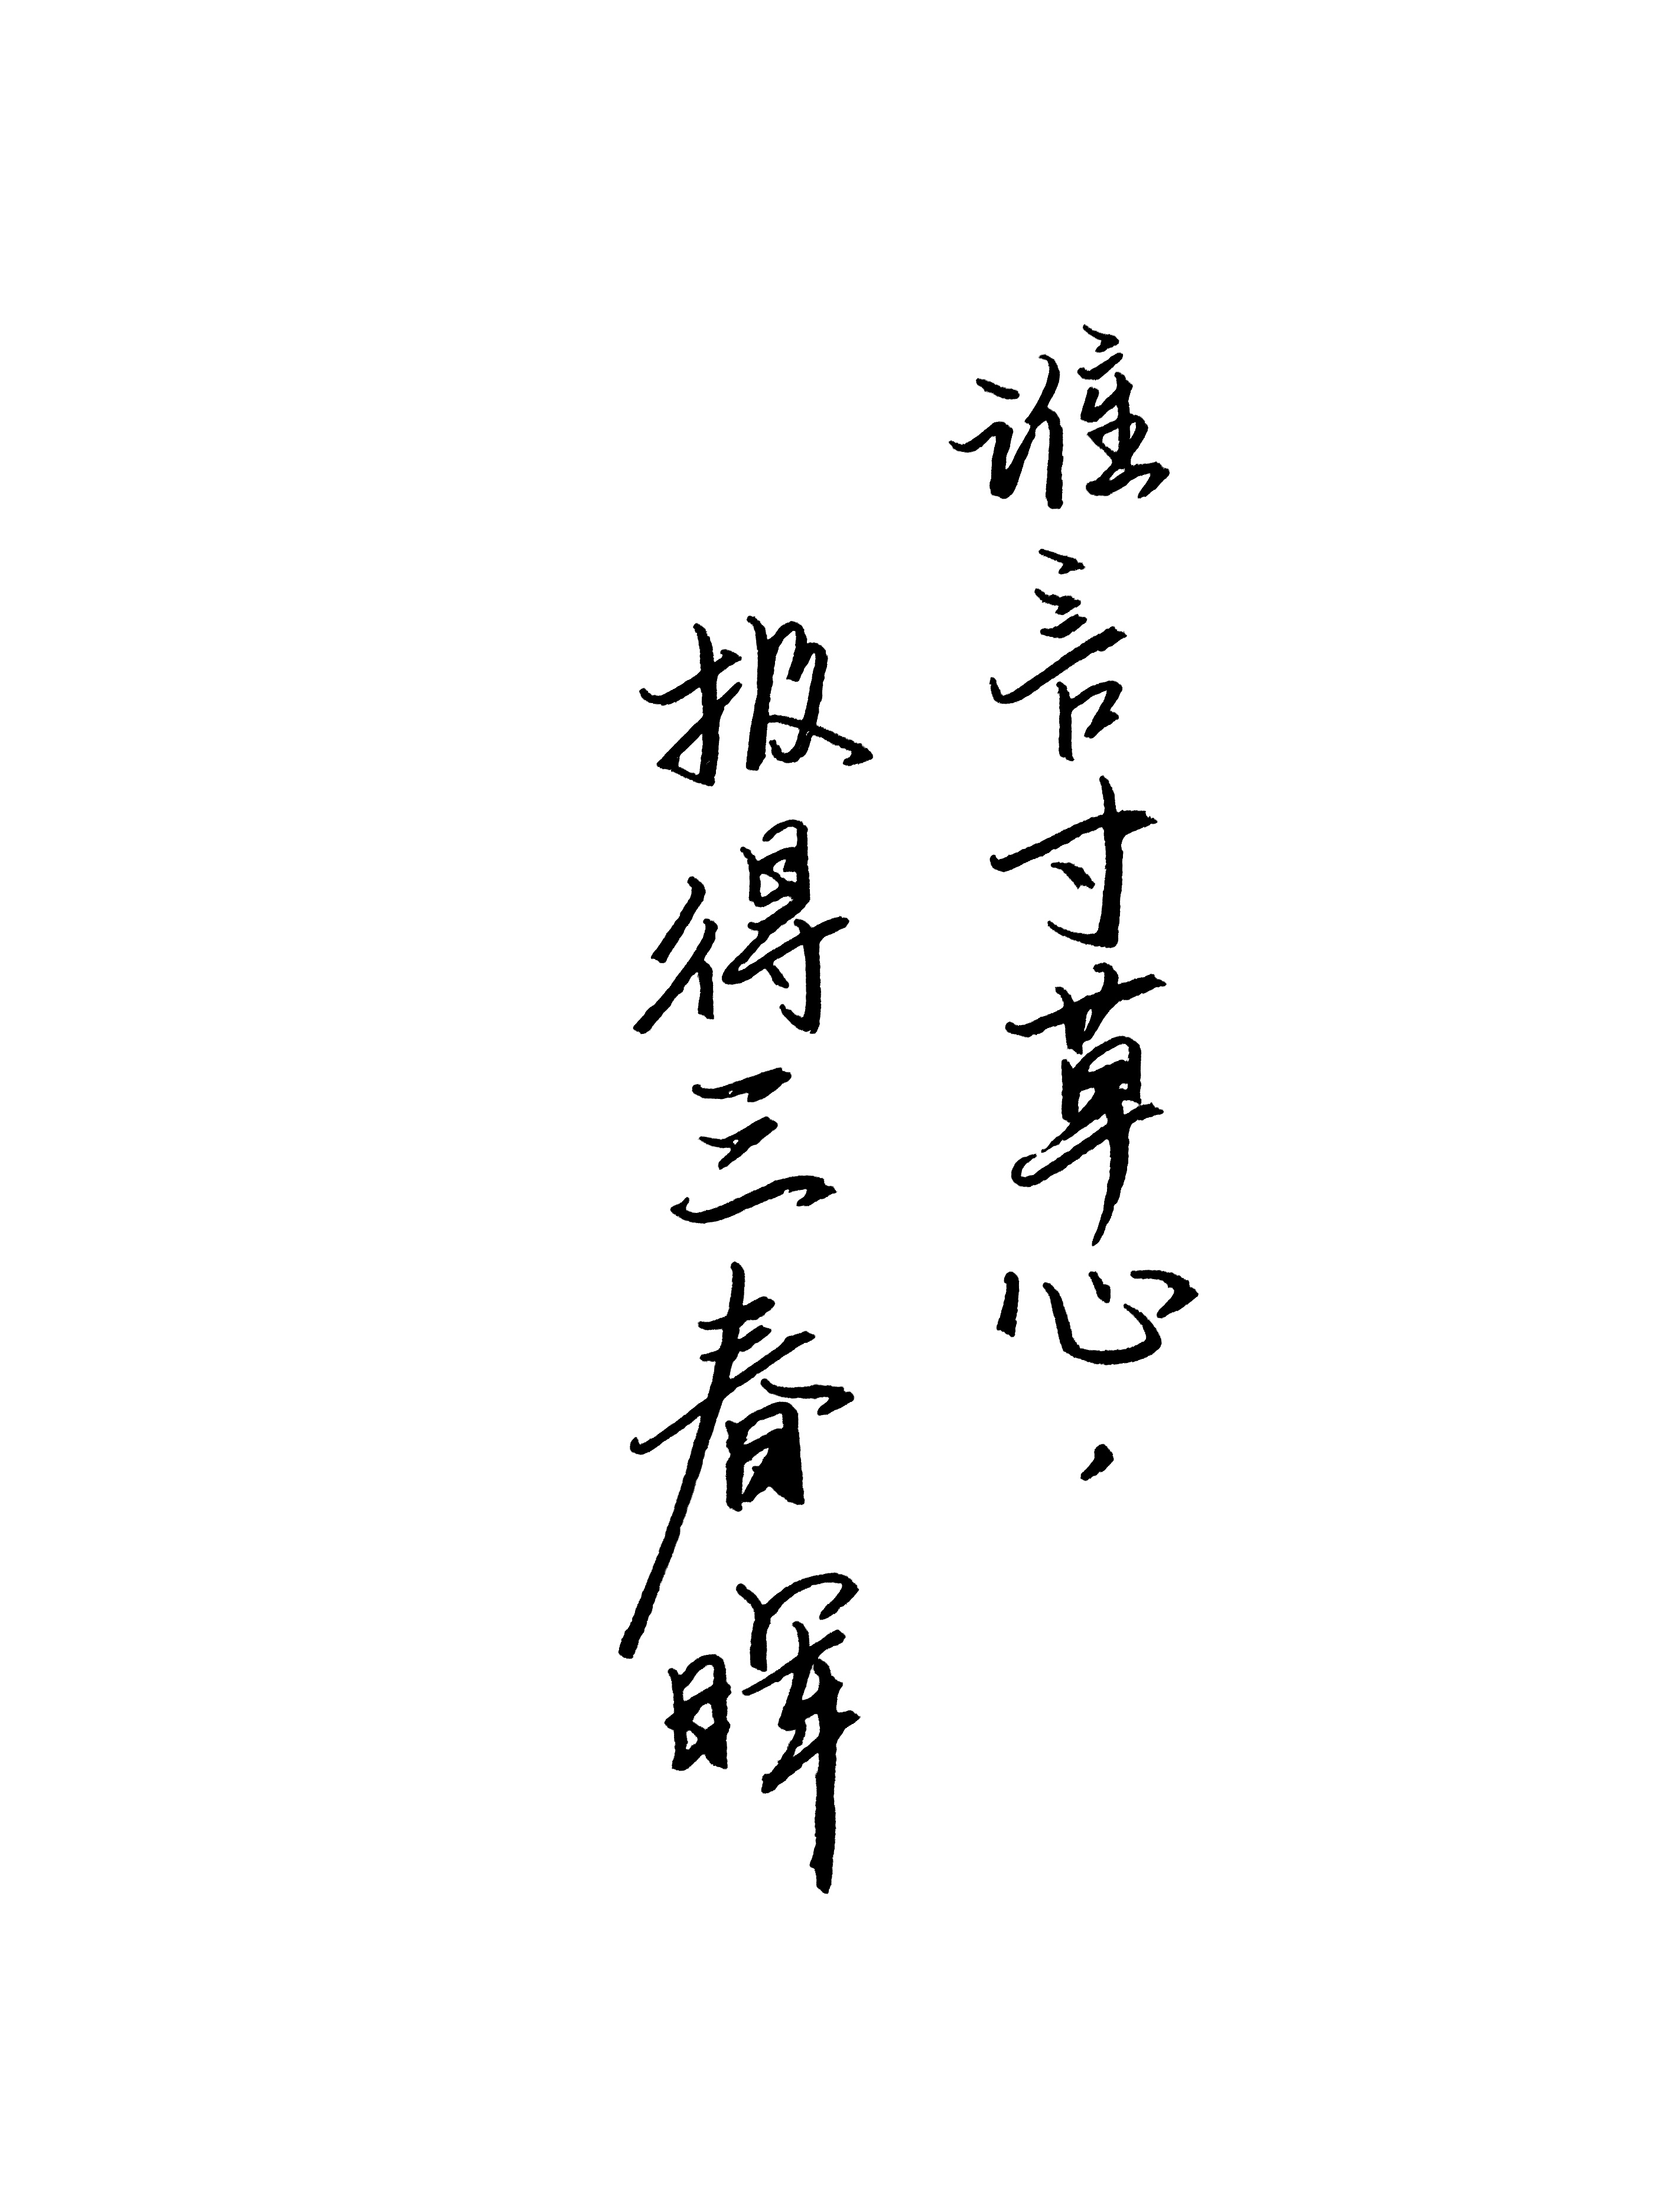 谁言寸草心，
报得三春晖